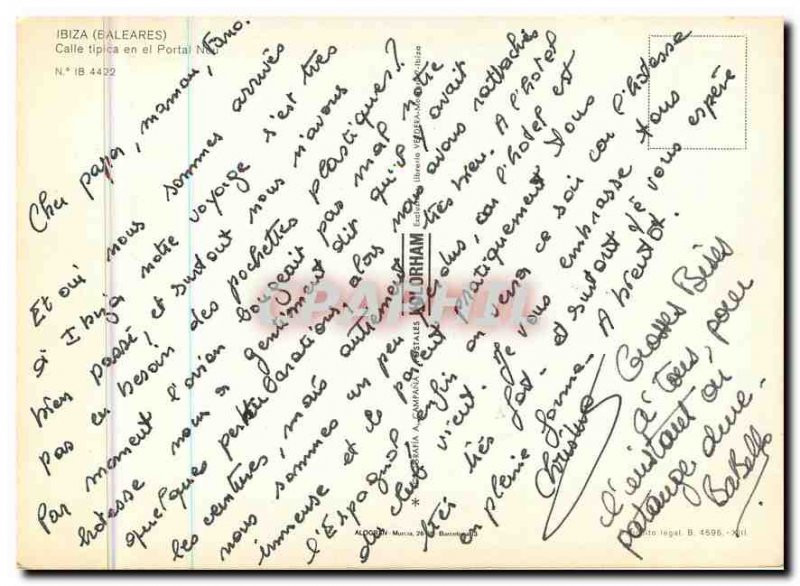 IBIZA (BALEARES)
Calle típica en el Portal Nou
N.° IB 4422
Cher papa, maman, Fano.
Et oui nous sommes arrivés
à Ibiza notre voyage s'est très
bien passé et surtout nous n'avons
pas eu besoin des pochettes plastiques?
Par moment l'avion bougeait pas mal notre
hotesse nous a gentiment dit qu'il y avait
quelques perturbations, alors nous avons rattachés
les ceintures, mais autrement très bien. A l'hotel
nous sommes un peu perdus, car l'hotel est
immense et ils parlent pratiquement tous
l'Espagnol enfin on verra ce soir car l'hotesse
de chez vient. Je vous embrasse tous
très très fort. et surtout j'e vous espère
en pleine forme. A bientot.
Christine
Grosses Bises
à Tous, pour
l'instant on
patauge dure.
BaBette
FOTOGRAFIA A. CAMPAÑA
POSTALES COLORHAM
Exclusivas Librería VERDERA-Ibiza
CPAPHIL
Murcia, Barcelona
Depósito legal. B. 4596-XIII.